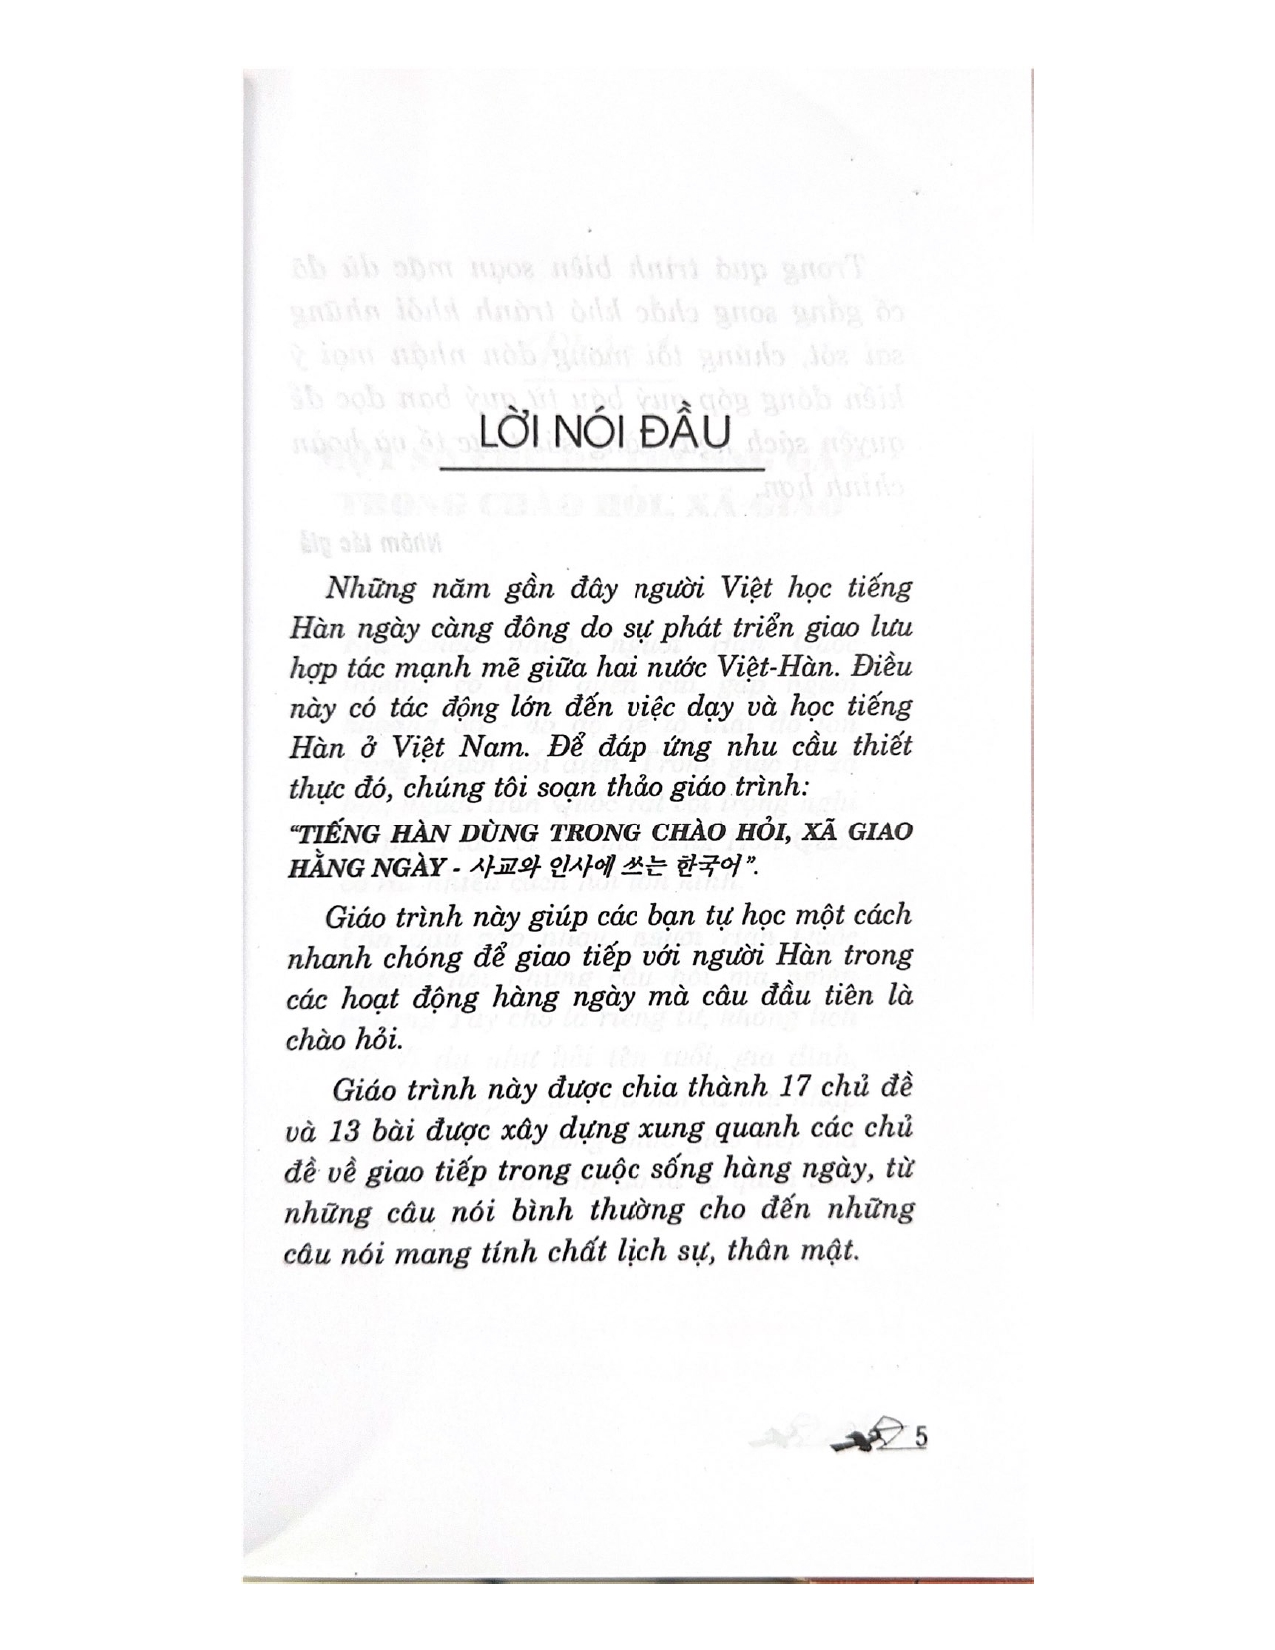 LỜI NÓI ĐẦU
Những năm gần đây người Việt học tiếng
Hàn ngày càng đông do sự phát triển giao lưu
hợp tác mạnh mẽ giữa hai nước Việt-Hàn. Điều
này có tác động lớn đến việc dạy và học tiếng
Hàn ở Việt Nam. Để đáp ứng nhu cầu thiết
thực đó, chúng tôi soạn thảo giáo trình:
“TIẾNG HÀN DÙNG TRONG CHÀO HỎI, XÃ GIAO
HẰNG NGÀY - 사교와 인사에 쓰는 한국어”.
Giáo trình này giúp các bạn tự học một cách
nhanh chóng để giao tiếp với người Hàn trong
các hoạt động hàng ngày mà câu đầu tiên là
chào hỏi.
Giáo trình này được chia thành 17 chủ đề
và 13 bài được xây dựng xung quanh các chủ
đề về giao tiếp trong cuộc sống hàng ngày, từ
những câu nói bình thường cho đến những
câu nói mang tính chất lịch sự, thân mật.
5